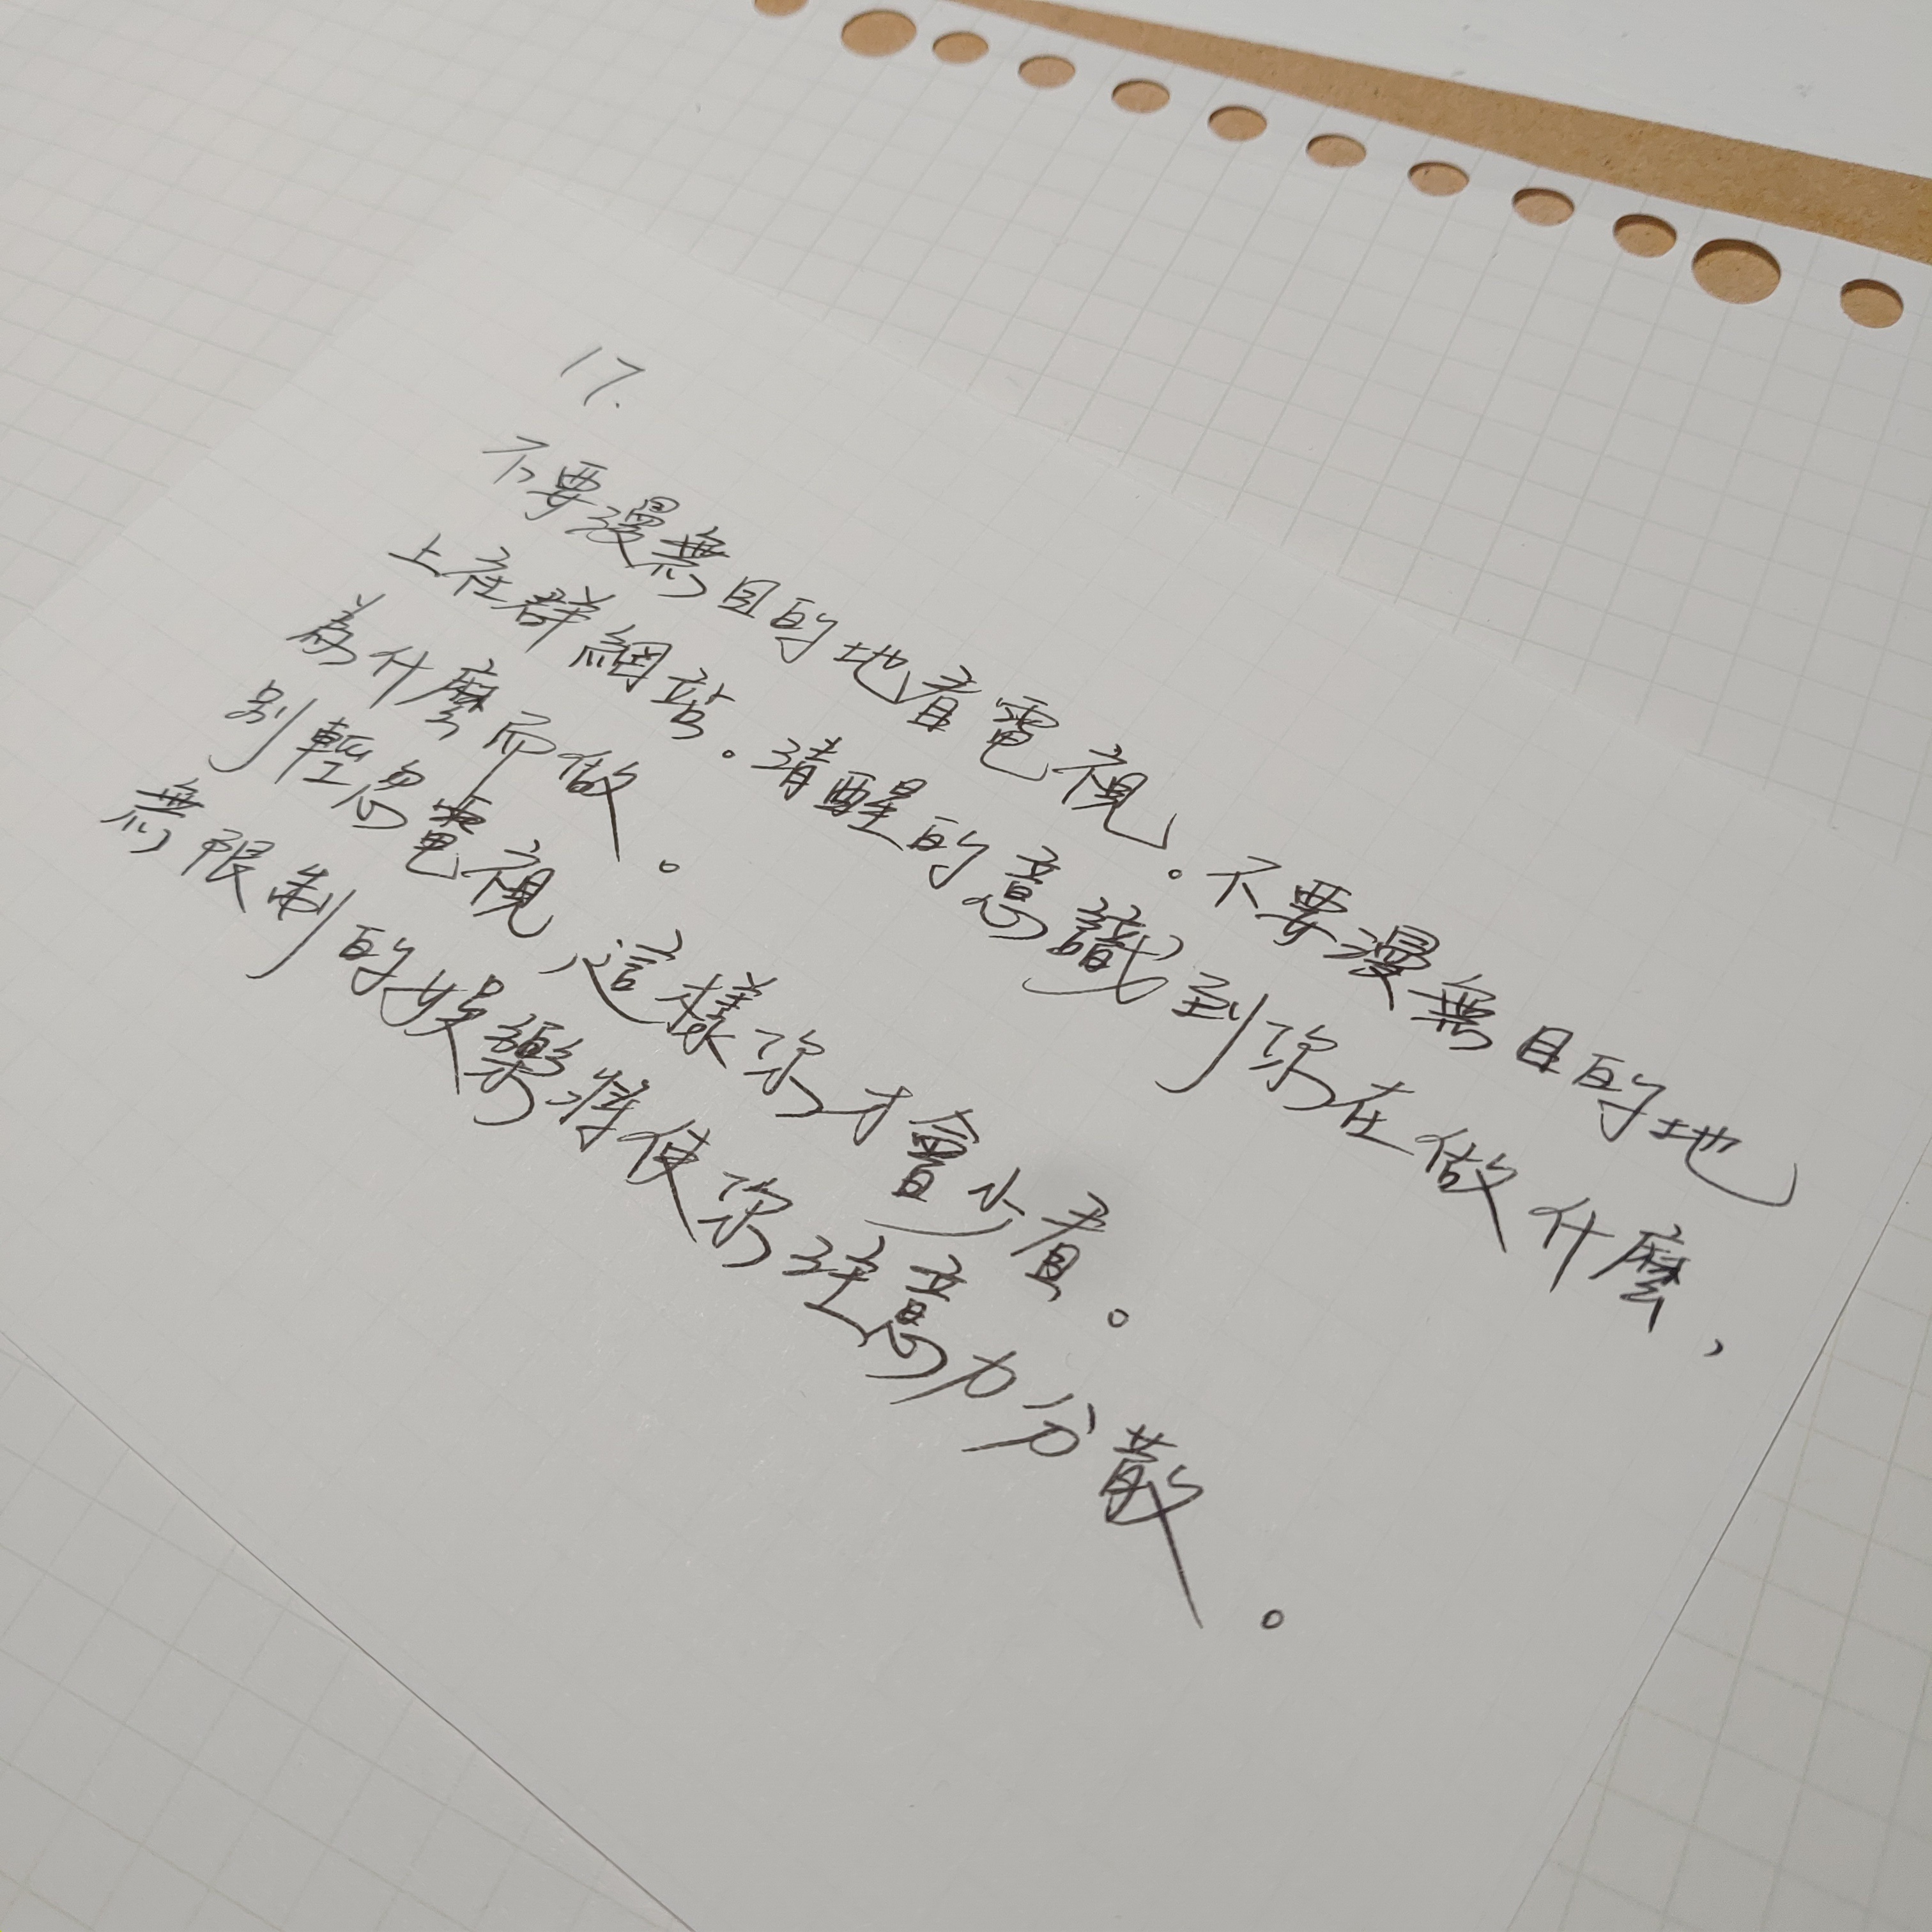 17.
不要漫無目的地看電視。不要漫無目的地
上社群網站。清醒的意識到你在做什麼，
為什麼而做。
別輕忽電視，這樣你才會少看。
無限制的娛樂將使你注意力分散。